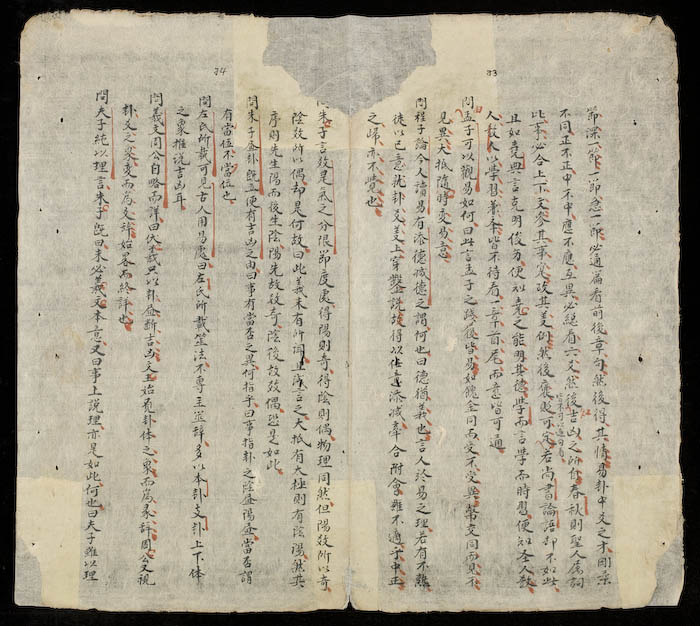 33
節深一節一節急一節必通篇看前後章句然後得其情易卦中爻之才因示
不同正不正中不中應不應互異必總看六爻然後吉凶之所作春秋則聖人属詞
比事必合上下文參其事攷其义例然後褒貶可定若尚書論語却不如此
且如堯典言克明俊方便知堯之能明其德學而言學而時習便知圣人教
人教人以學習皆不待看一章首尾而意皆可通
問孟子可以觀易如何曰此言孟子之踐履皆易如餽金同而受不受異幣交同而見不
見異大抵隨時变易意
問程子論今人讀易有添德减德之謂何也曰德猶義也言人於易之理若有不熟
徒以己意就卦爻義上穿鑿說故得以任意添减牽合附會雖不過乎中正
之歸亦不覺也
34
問朱子言数是氣之分限節度處得陽則奇得陰則偶物理同然但陽数所以奇
陰数所以偶却是何故曰此義未有所聞且序言之大抵有太極則有陰陽然其
序則先生陽而後生陰陽先故数奇陰後故数偶恐是如此
問朱子益卦旣立便有吉凶之由曰事有當否之異何指乎曰事指卦之陰盛陽盛當否謂
有當位不當位也
問左氏所載可見古人用易處曰左氏所載筮法不專主筮辞多以本卦支卦上下体
之象推說吉凶耳
問羲文周公自略而詳曰伏羲只以卦画斷吉凶文王始有卦体之象而爲彖辞周公又視
卦爻之象变而爲爻辞始畧而終詳也
問夫子純以理言朱子旣曰未必羲文本意又曰事上說理亦是如此何也曰夫子雖以理